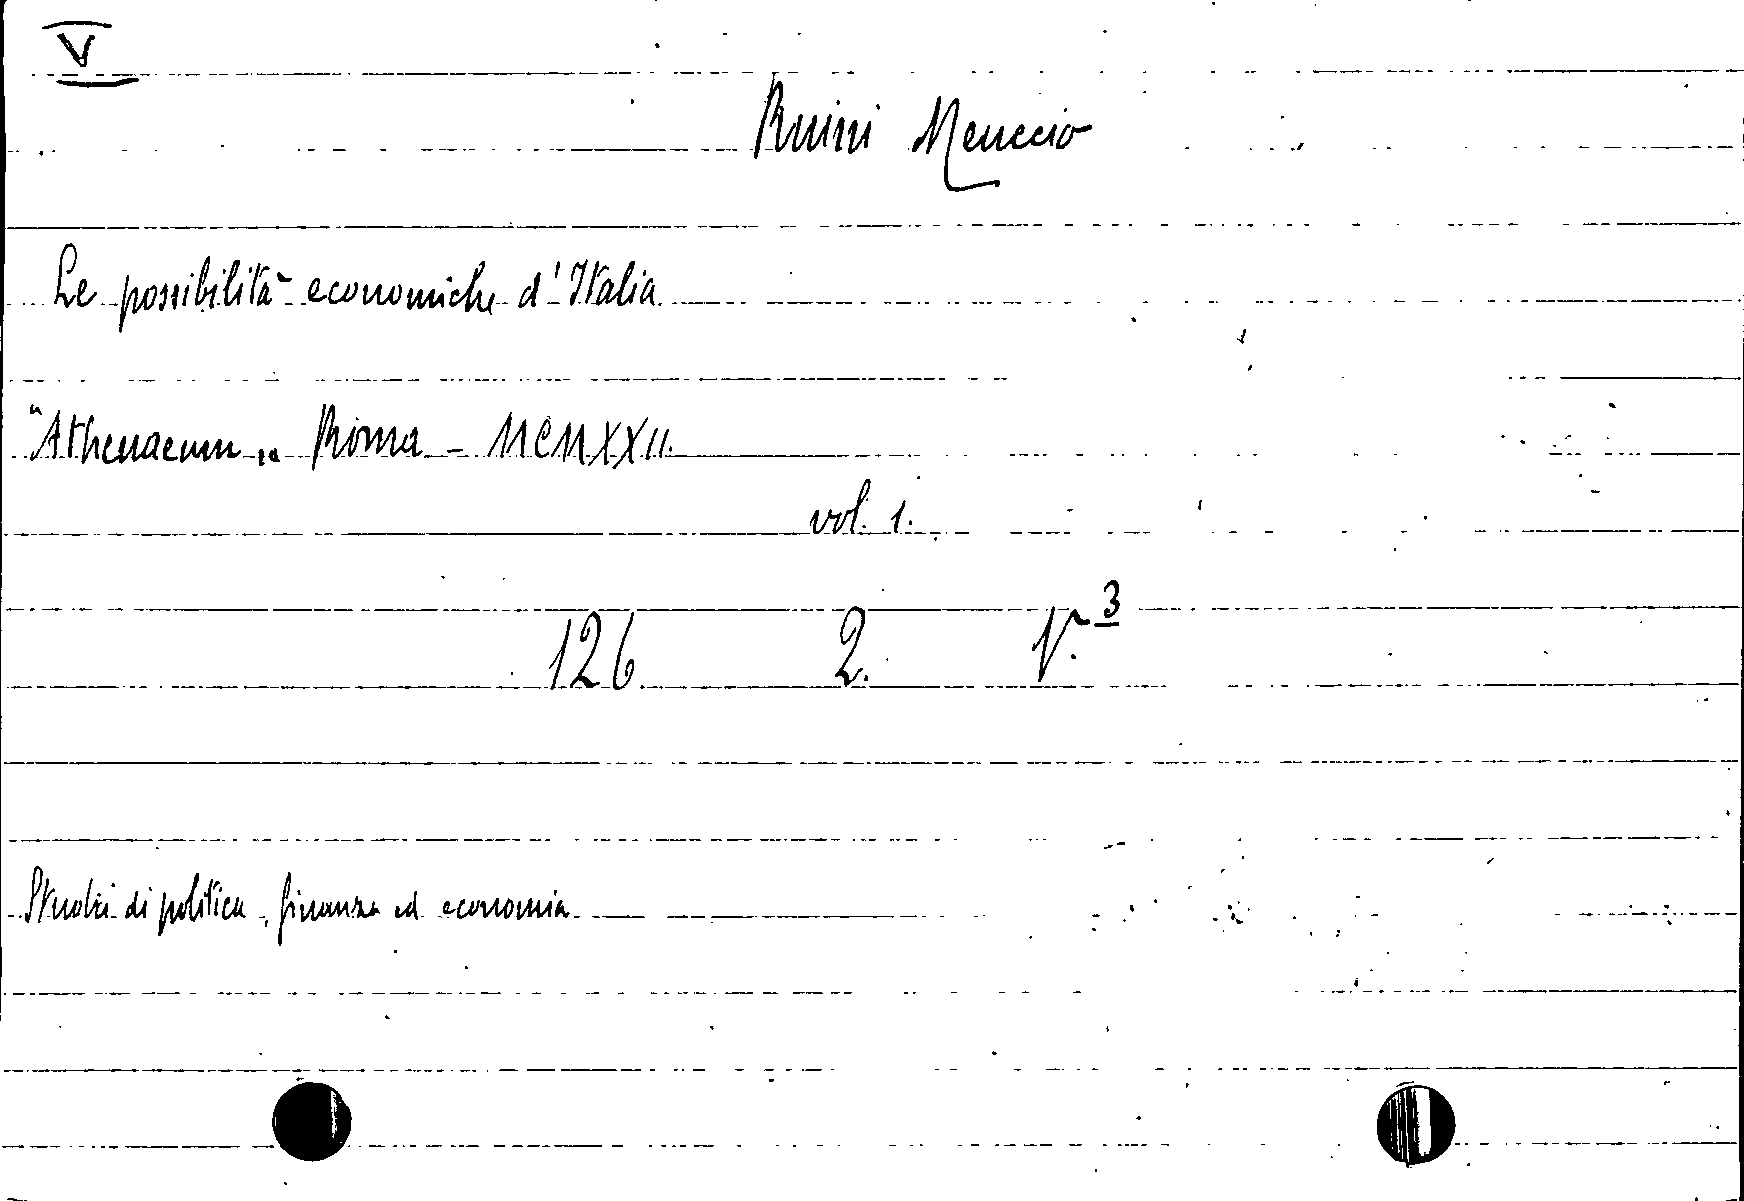 V
Ruini Meuccio
Le possibilità economiche d'Italia
"Athenaeum„ Roma - MCMXXII.
vol. 1.
126 2. V.3
Studii di politica, finanza ed economia